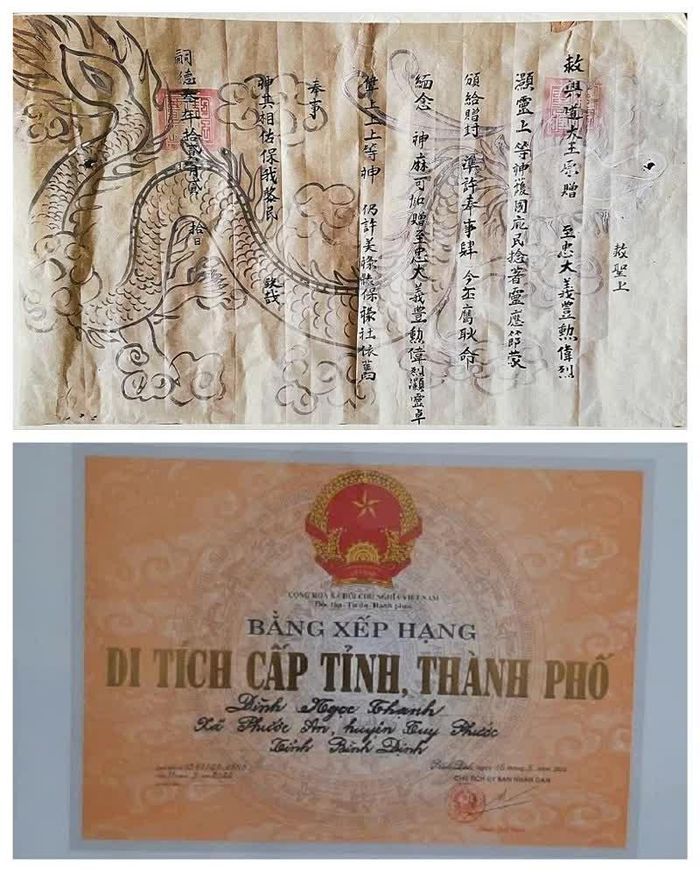 敕聖上
敕興道大王原贈 至忠大義豊勲偉烈
顯靈上等神護國庇民稔著靈應節蒙
頒給贈封 準許奉事肆 今丕膺耿命
緬念 神庥可加贈至忠大義豊勲偉烈顯靈卓
上上等神 仍許美祿縣保祿社依舊
奉事
神其相佑保我黎民 欽哉
嗣德叁年拾貳月貳 拾日
CỘNG HÒA XÃ HỘI CHỦ NGHĨA VIỆT NAM
Độc lập - Tự do - Hạnh phúc
BẰNG XẾP HẠNG
DI TÍCH CẤP TỈNH, THÀNH PHỐ
Đình Ngọc Thạnh
Xã Phước An, huyện Tuy Phước
Tỉnh Bình Định
CHỦ TỊCH ỦY BAN NHÂN DÂN